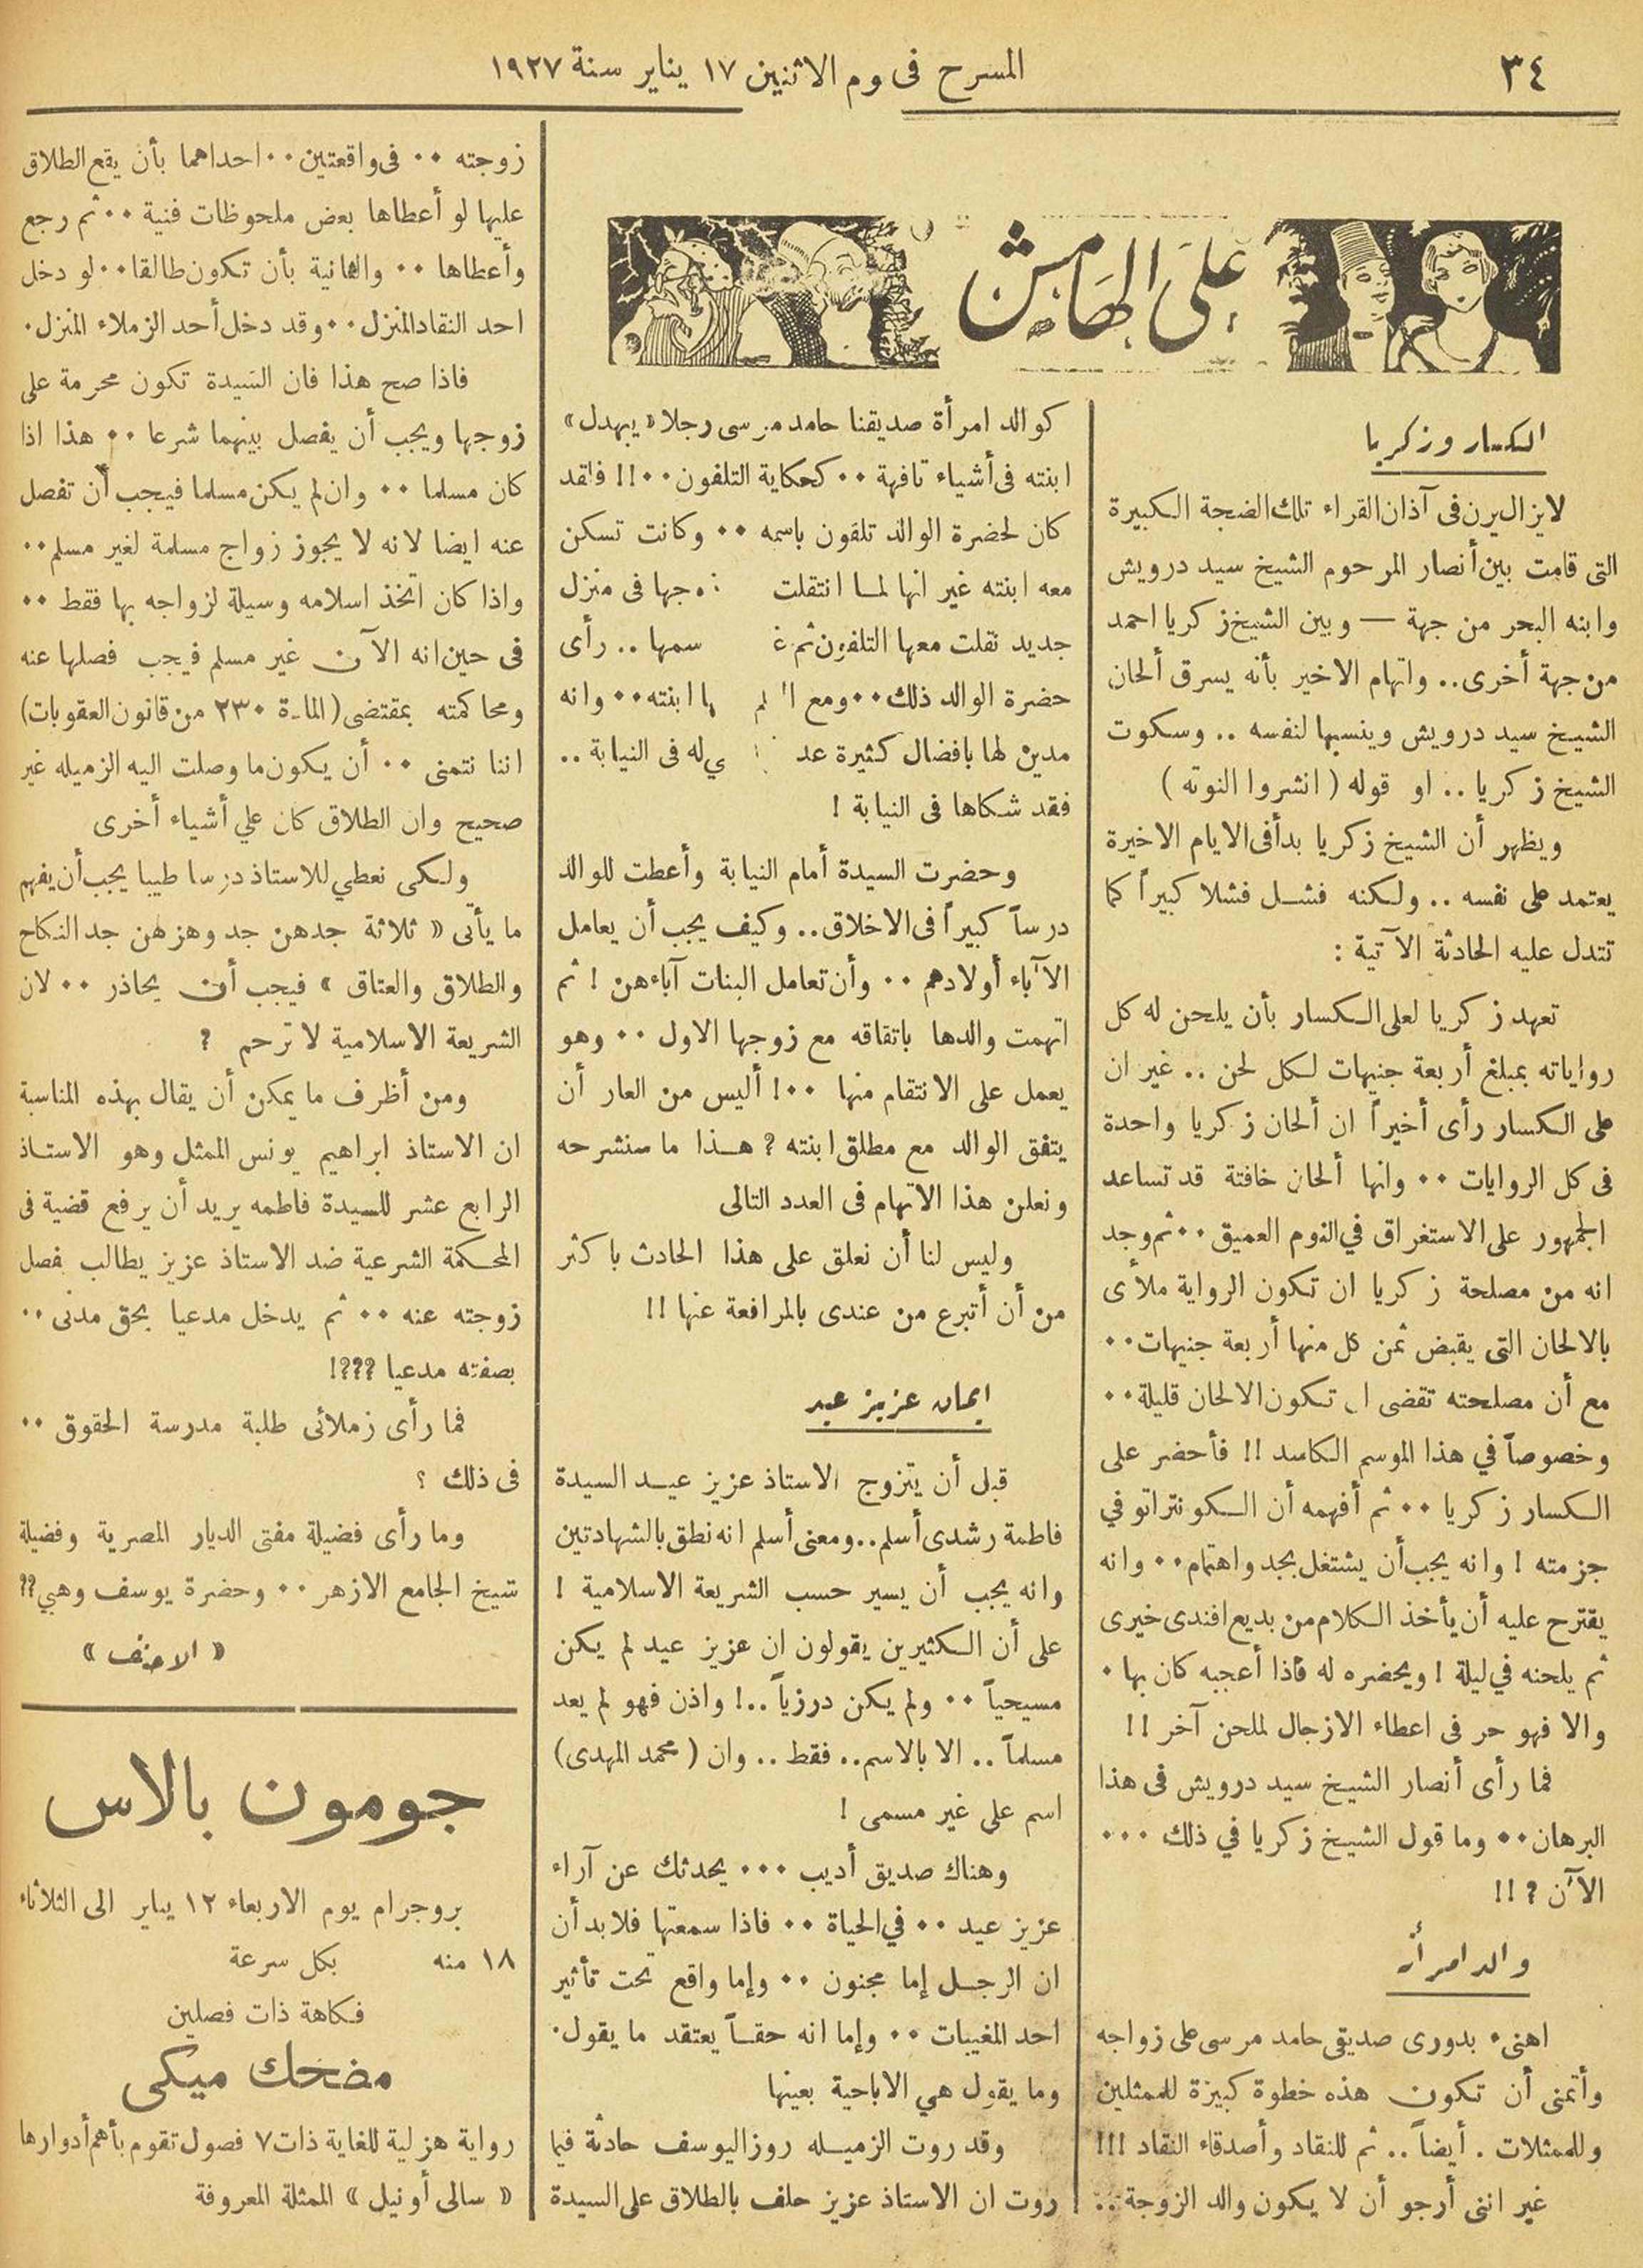 ٣٤
المسرح فى وم الاثنين ١٧ يناير سنة ١٩٢٧
على الهامش
الكسار وزكريا
لايزال يرن فى آذان القراء تلك الضجة الكبيرة
التى قامت بين أنصار المرحوم الشيخ سيد درويش
وابنه البحر من جهة — وبين الشيخ زكريا احمد
من جهة أخرى.. واتهام الاخير بأنه يسرق ألحان
الشيخ سيد درويش وينسبها لنفسه .. وسكوت
الشيخ زكريا .. او قوله ( انشروا النوته )
ويظهر أن الشيخ زكريا بدأ فى الايام الاخيرة
يعتمد على نفسه .. ولكنه فشل فشلا كبيراً كما
تتدل عليه الحادثة الآتية :
تعهد زكريا لعلى الكسار بأن يلحن له كل
رواياته بمبلغ أربعة جنيهات لكل لحن .. غير ان
على الكسار رأى أخيراً ان ألحان زكريا واحدة
فى كل الروايات ٠٠ وانها ألحان خافتة قد تساعد
الجمهور على الاستغراق في النوم العميق ٠٠ ثم وجد
انه من مصلحة زكريا ان تكون الرواية ملأى
بالالحان التى يقبض ثمن كل منها أربعة جنيهات ٠٠
مع أن مصلحته تقضى ا تكون الالحان قليلة ٠٠
وخصوصاً في هذا الموسم الكاسد !! فأحضر على
الكسار زكريا ٠٠ ثم أفهمه أن الكونتراتو في
جزمته ! وانه يجب أن يشتغل بجد واهتمام ٠٠ وانه
يقترح عليه أن يأخذ الكلام من بديع افندى خيرى
ثم يلحنه في ليلة ! ويحضره له فاذا أعجبه كان بها ٠
والا فهو حر فى اعطاء الازجال لملحن آخر !!
فما رأى أنصار الشيخ سيد درويش فى هذا
البرهان ٠٠ وما قول الشيخ زكريا في ذلك ٠٠٠
الآن ? !!
والد امرأة
اهنىء بدورى صديقى حامد مرسى على زواجه
وأتمنى أن تكون هذه خطوة كبيرة للممثلين
وللممثلات . أيضاً .. ثم للنقاد وأصدقاء النقاد !!!
غير اننى أرجو أن لا يكون والد الزوجة ..
كوالد امرأة صديقنا حامد مرسى رجلا « يبهدل »
ابنته فى أشياء تافهة ٠٠ كحكاية التلفون ٠٠ !! فلقد
كان لحضرة الوالد تلفون باسمه ٠٠ وكانت تسكن
معه ابنته غير انها لما انتقلت وجها فى منزل
جديد نقلت معها التلفون ثم غ سمها .. رأى
حضرة الوالد ذلك ٠٠ ومع ا لم ا ابنته ٠٠ وانه
مدين لها بافضال كثيرة عد ي له فى النيابة ..
فقد شكاها فى النيابة !
وحضرت السيدة أمام النيابة وأعطت للوالد
درساً كبيراً فى الاخلاق .. وكيف يجب أن يعامل
الآباء أولادهم ٠٠ وأن تعامل البنات آباءهن ! ثم
اتهمت والدها باتفاقه مع زوجها الاول ٠٠ وهو
يعمل على الانتقام منها ٠٠ ! أليس من العار أن
يتفق الوالد مع مطلق ابنته ? هذا ما سنشرحه
ونعلن هذا الاتهام فى العدد التالى
وليس لنا أن نعلق على هذا الحادث باكثر
من أن أتبرع من عندى بالمرافعة عنها !!
ايمان عزيز عيد
قبل أن يتزوج الاستاذ عزيز عيد السيدة
فاطمة رشدى أسلم .. ومعنى أسلم انه نطق بالشهادتين
وانه يجب أن يسير حسب الشريعة الاسلامية !
على أن الكثيرين يقولون ان عزيز عيد لم يكن
مسيحياً ٠٠ ولم يكن درزياً ..! واذن فهو لم يعد
مسلماً .. الا بالاسم .. فقط .. وان ( محمد المهدى )
اسم على غير مسمى !
وهناك صديق أديب ٠٠٠ يحدثك عن آراء
عزيز عيد ٠٠ في الحياة ٠٠ فاذا سمعتها فلابد أن
ان الرجل إما مجنون ٠٠ وإما واقع تحت تأثير
احد المغيبات ٠٠ وإما انه حقاً يعتقد ما يقول ٠
وما يقول هي الاباحية بعينها
وقد روت الزميله روز اليوسف حادثة فيما
روت ان الاستاذ عزيز حلف بالطلاق على السيدة
زوجته ٠٠ فى واقعتين ٠٠ احداهما بأن يقع الطلاق
عليها لو أعطاها بعض ملحوظات فنية ٠٠ ثم رجع
وأعطاها ٠٠ والثانية بأن تكون طالقا ٠٠ لو دخل
احد النقاد المنزل ٠٠ وقد دخل أحد الزملاء المنزل ٠
فاذا صح هذا فان السيدة تكون محرمة على
زوجها ويجب أن يفصل بينهما شرعا ٠٠ هذا اذا
كان مسلما ٠٠ وان لم يكن مسلما فيجب أن تفصل
عنه ايضا لانه لا يجوز زواج مسلمة لغير مسلم ٠٠
واذا كان اتخذ اسلامه وسيلة لزواجه بها فقط ٠٠
فى حين انه الآن غير مسلم فيجب فصلها عنه
ومحاكمته بمقتضى ( المادة ٢٣٠ من قانون العقوبات )
اننا نتمنى ٠٠ أن يكون ما وصلت اليه الزميله غير
صحيح وان الطلاق كان علي أشياء أخرى
ولكى نعطي للاستاذ درسا طيبا يجب أن يفهم
ما يأتى « ثلاثة جدهن جد وهزلهن جد النكاح
والطلاق والعتاق » فيجب أن يحاذر ٠٠ لان
الشريعة الاسلامية لا ترحم ?
ومن أظرف ما يمكن أن يقال بهذه المناسبة
ان الاستاذ ابراهيم يونس الممثل وهو الاستاذ
الرابع عشر للسيدة فاطمه يريد أن يرفع قضية فى
المحكمة الشرعية ضد الاستاذ عزيز يطالب بفصل
زوجته عنه ٠٠ ثم يدخل مدعيا بحق مدنى ٠٠
بصفته مدعيا ???!
فما رأى زملائى طلبة مدرسة الحقوق ٠٠
فى ذلك ؟
وما رأى فضيلة مفتى الديار المصرية وفضيلة
شيخ الجامع الازهر ٠٠ وحضرة يوسف وهبي ??
« الاحنف »
جومون بالاس
بروجرام يوم الاربعاء ١٢ يناير الى الثلاثاء
١٨ منه بكل سرعة
فكاهة ذات فصلين
مضحك ميكى
رواية هزلية للغاية ذات ٧ فصول تقوم بأهم أدوارها
« سالى أونيل » الممثلة المعروفة